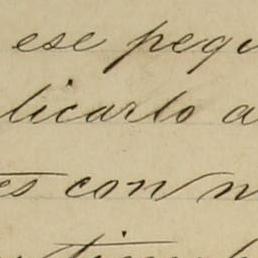 ese pequ
licarlo a
es con n